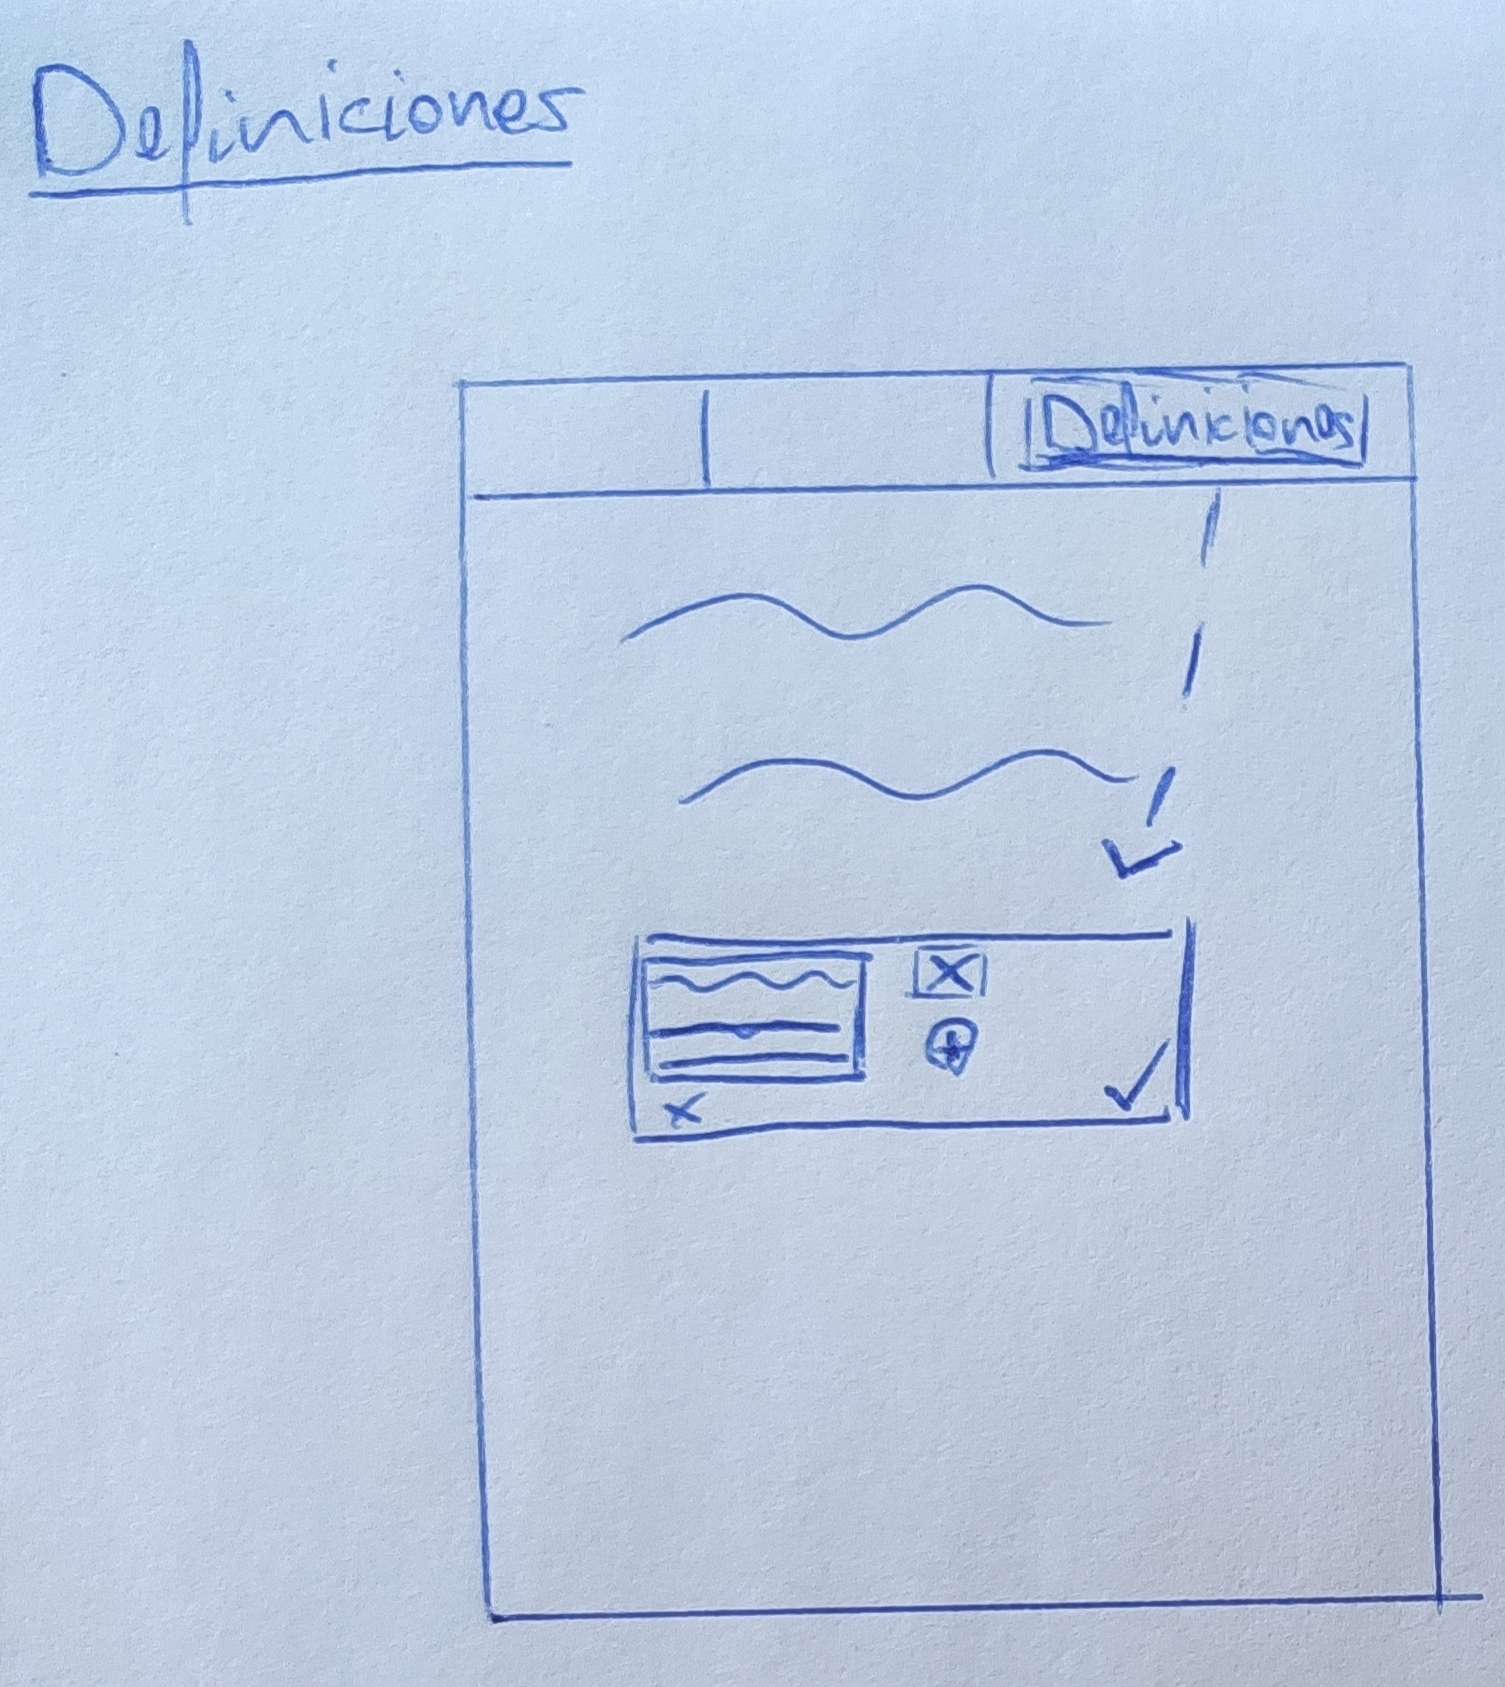 Definiciones
Definiciones